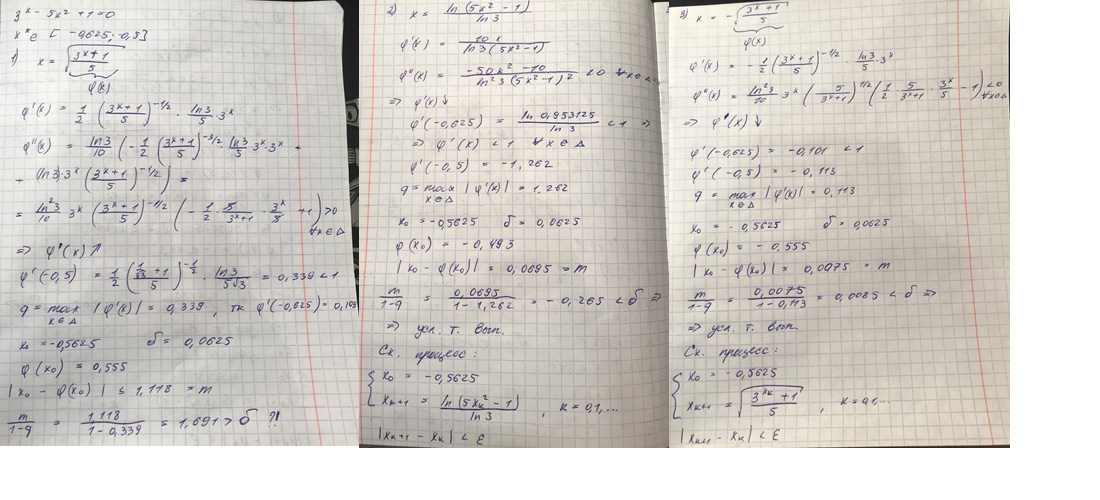 3^x - 5x² + 1 = 0
x* ∈ [-0,625; -0,5]
1) x = √((3^x+1)/5)
φ(x)
φ'(x) = 1/2 ((3^x+1)/5)^(-1/2) · ln3/5 · 3^x
φ''(x) = ln3/10 (-1/2 ((3^x+1)/5)^(-3/2) · ln3/5 3^x · 3^x +
+ (ln3)·3^x ((3^x+1)/5)^(-1/2)) =
= ln²3/10 3^x ((3^x+1)/5)^(-1/2) (-1/2 · 5/(3^x+1) · 3^x/5 + 1) > 0
∀x∈Δ
⇒ φ'(x) ↑
φ'(-0,5) = 1/2 ((1/√3 + 1)/5)^(-1/2) · ln3/(5√3) = 0,339 < 1
q = max |φ'(x)| = 0,339, тк φ'(-0,625) =
x∈Δ
x₀ = -0,5625 δ = 0,0625
φ(x₀) = 0,555
|x₀ - φ(x₀)| ≤ 1,118 = m
m/(1-q) = 1,118/(1-0,339) = 1,691 > δ ?!
2) x = ln(5x² - 1)/ln3
φ'(x) = 10x/(ln3(5x²-1))
φ''(x) = (-50x² - 10)/(ln²3 (5x²-1)²) < 0 ∀x∈Δ
⇒ φ'(x) ↓
φ'(-0,625) = ln 0,953125/ln 3 < 1 ⇒
⇒ φ'(x) < 1 ∀x∈Δ
φ'(-0,5) = -1,262
q = max |φ'(x)| = 1,262
x∈Δ
x₀ = -0,5625 δ = 0,0625
φ(x₀) = -0,493
|x₀ - φ(x₀)| = 0,0695 = m
m/(1-q) = 0,0695/(1-1,262) = -0,265 < δ ⇒
⇒ усл. т. вып.
Ск. процесс:
{ x₀ = -0,5625
x_{k+1} = ln(5x_k² - 1)/ln3, k = 0,1,...
|x_{k+1} - x_k| < ε
3) x = -√((3^x+1)/5)
φ(x)
φ'(x) = -1/2 ((3^x+1)/5)^(-1/2) · ln3/5 · 3^x
φ''(x) = ln²3/10 3^x (5/(3^x+1))^(1/2) (1/2 · 5/(3^x+1) · 3^x/5 - 1) < 0
∀x∈Δ
⇒ φ'(x) ↓
φ'(-0,625) = -0,101 < 1
φ'(-0,5) = -0,113
q = max |φ'(x)| = 0,113
x∈Δ
x₀ = -0,5625 δ = 0,0625
φ(x₀) = -0,555
|x₀ - φ(x₀)| = 0,0075 = m
m/(1-q) = 0,0075/(1-0,113) = 0,0085 < δ ⇒
⇒ усл. т. вып.
Ск. процесс:
{ x₀ = -0,5625
x_{k+1} = √((3^{x_k}+1)/5), k = 0,1,...
|x_{k+1} - x_k| < ε